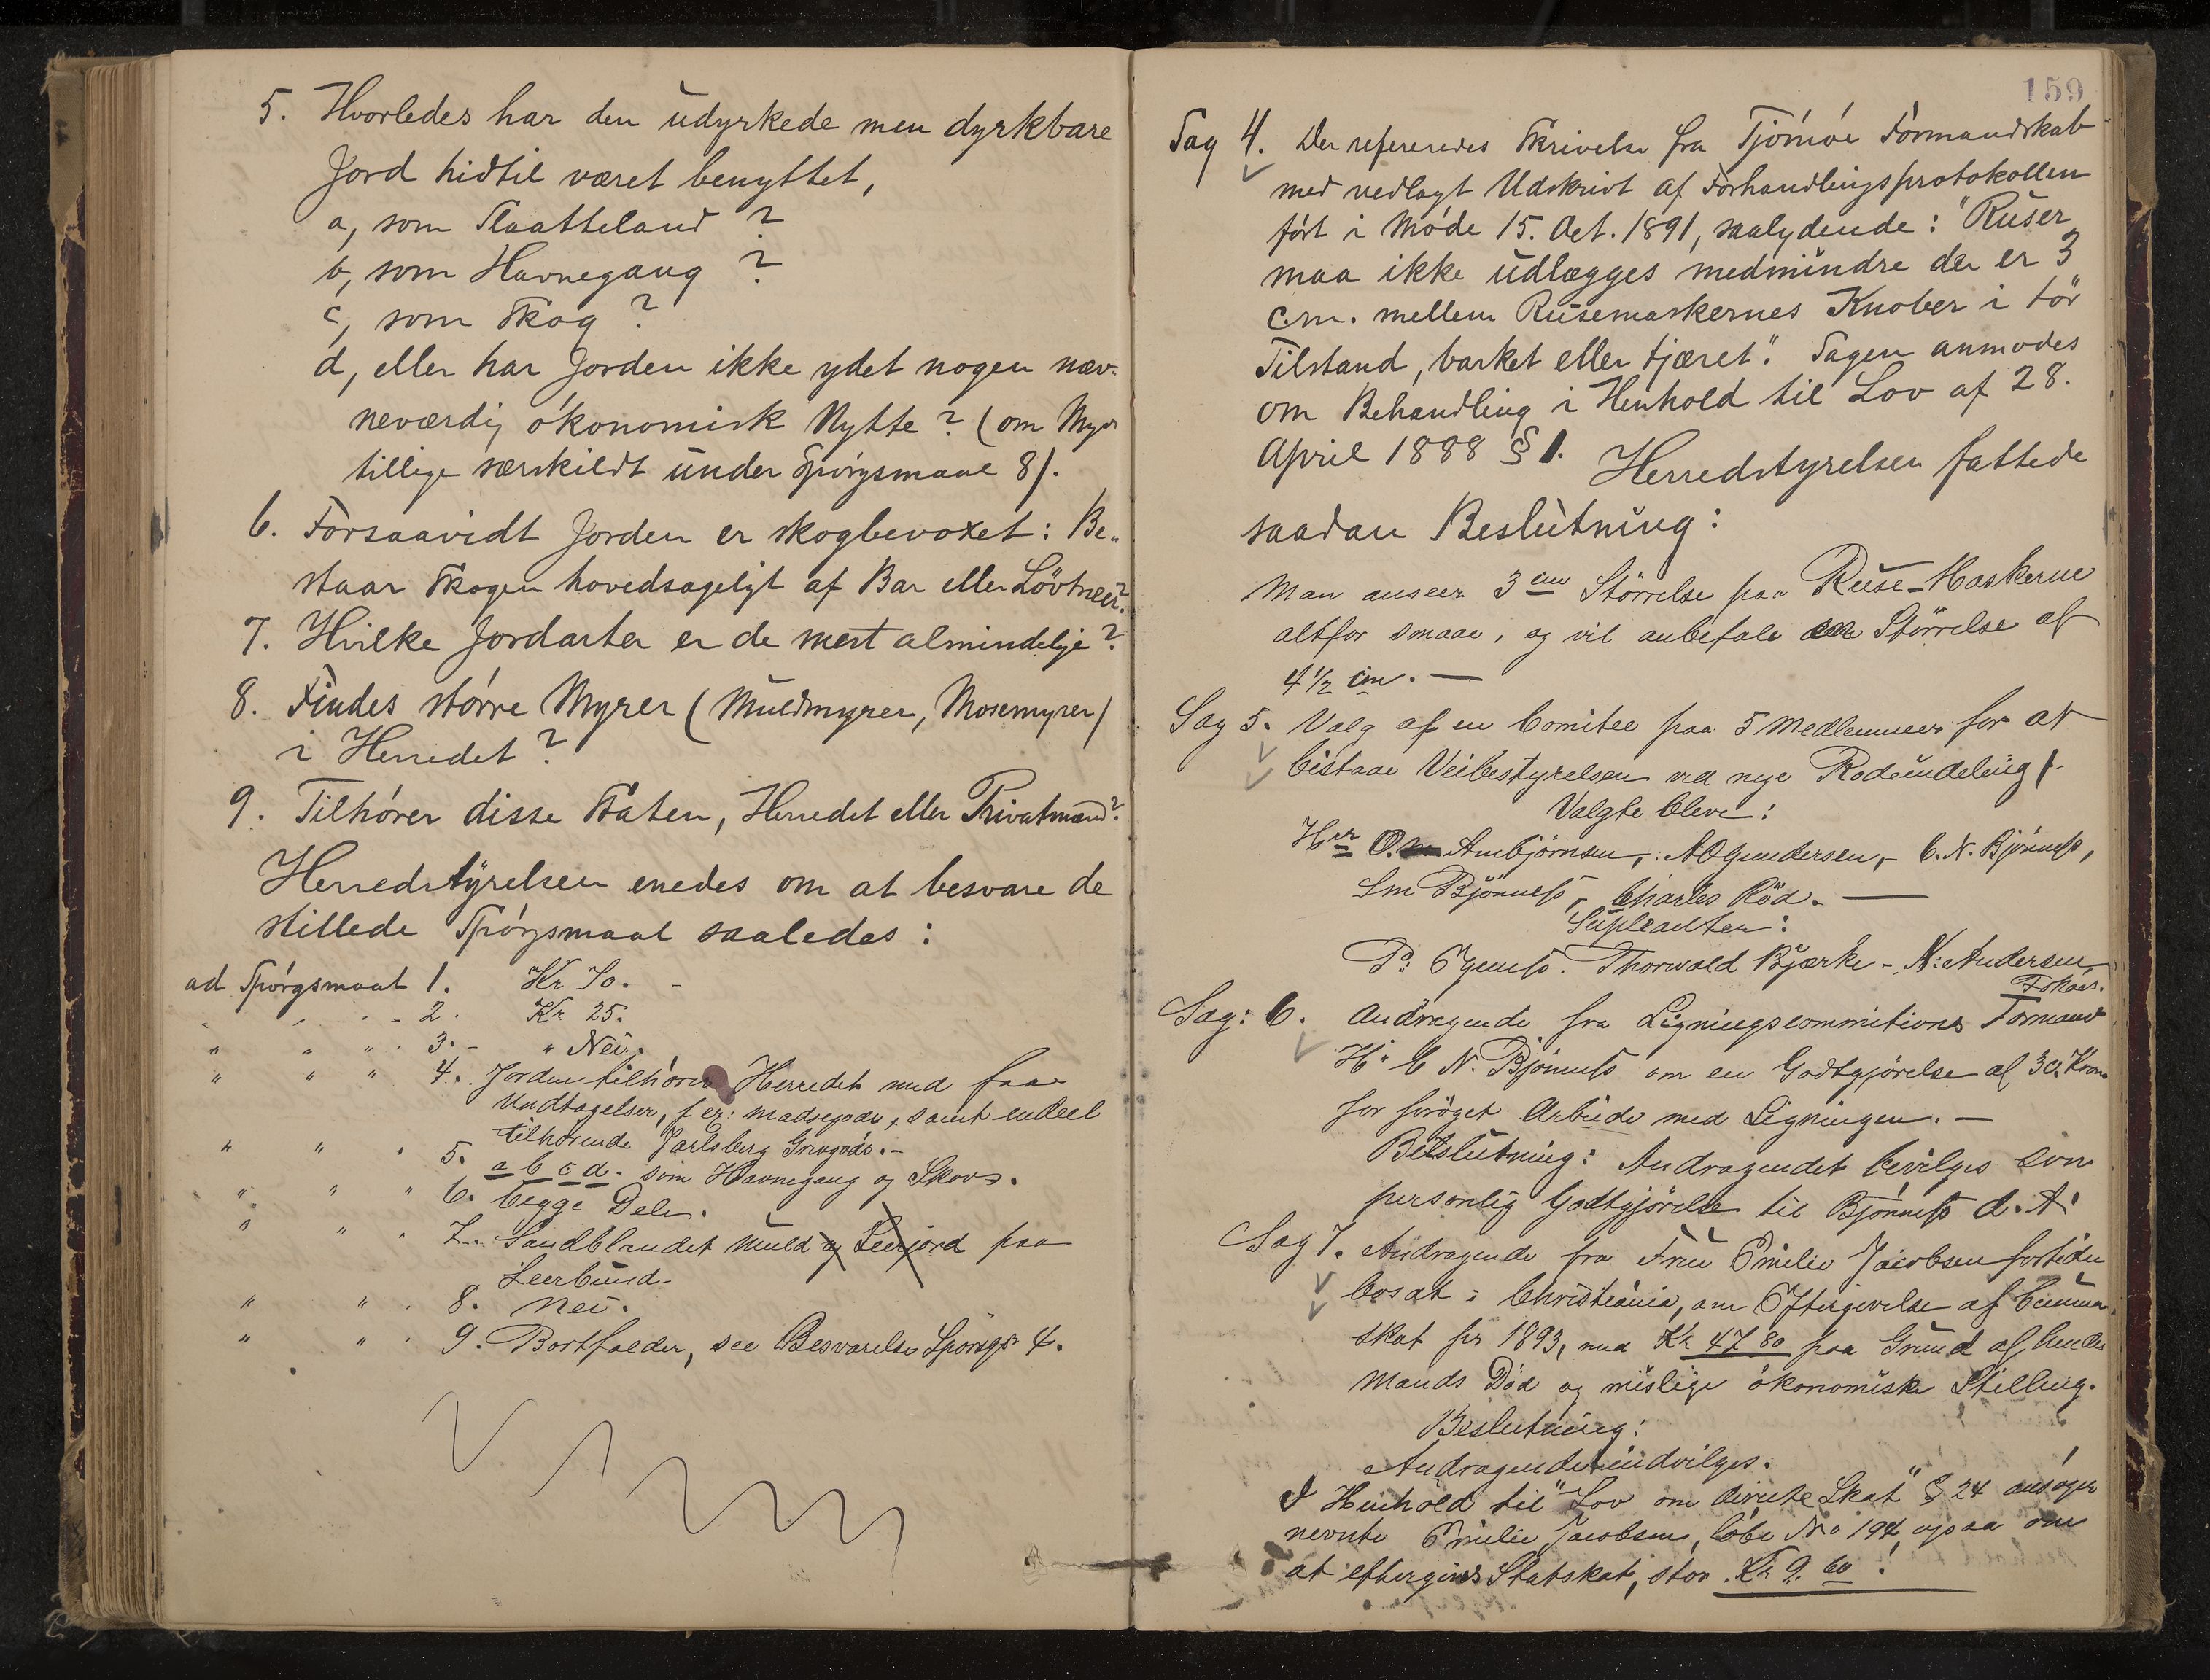 5. Hvorledes har den udyrkede men dyrkbare
Jord hidtil været benyttet,
a, som Slaatteland ?
b, som Havnegang ?
c, som Skog ?
d, eller har Jorden ikke ydet nogen næv-
neværdig økonomisk Nytte ? (om Myr
tillige særskildt under Spørgsmaal 8).
6. Forsaavidt Jorden er skogbevoxet: Be-
staar Skogen hovedsageligt af Bar eller Løvtræer?
7. Hvilke Jordarter er de mest almindelige ?
8. Findes større Myrer (Muldmyrer, Mosemyrer)
i Herredet ?
9. Tilhører disse Staten, Herredet eller Privatmænd?
Herredstyrelsen enedes om at besvare de
stillede Spørgsmaal saaledes :
ad Spørgsmaal 1. Kr 50. -
" " " 2. Kr 25.
" " " 3. - " Nei.
" " " 4. Jorden tilhører Herredet med faa
Undtagelser, f ex: , samt endeel
tilhørende Jarlsberg Grevgods. -
" " " 5. a b c d. som Havnegang og Skov.
" " " 6. begge Dele.
" " " 7. Sandblandet Muld og Leerjord paa
Leerbund.
" " " 8. Nei.
" " " 9. Bortfalder, see Besvarelse Spørsgs 4.
159
Sag 4. Der refereredes Skrivelse fra Tjømøe Formandskab
med vedlagt Udskrivt af Forhandlingsprotokollen
ført i Møde 15. Oct. 1891, saalydende : "Ruser
maa ikke udlægges medmindre der er 3
c.m. mellem Rusemaskernes Knober i tør
Tilstand, barket eller tjæret". Sagen anmodes
om Behandling i Henhold til Lov af 28.
April 1888 § 1. Herredstyrelsen fattede
saadan Beslutning :
Man anseer 3 cm Størrelse paa Ruse-Maskerne
altfor smaae, og vil anbefale Størrelse af
4 1/2 cm. —
Sag 5. Valg af en Comitee paa 5 Medlemmer for at
bistaae Veibestyrelsen ved nye Rodeindeling /.
Valgte bleve :
Hrr O. Ambjørnsen, A O Gundersen, - C. N. Bjønneß,
Sm Bjønneß, Charles Röd. —
Supleanter :
P: Egeneß. Thorvald Bjærke - N: Andersen,
Sag: 6. Andragende fra Ligningscommitions Formand
Hr C N. Bjønneß om en Godtgjørelse af 30. Kroner
for forøget Arbeide med Ligningen. —
Beslutning : Andragendet bevilges som
personlig Godtgjørelse til Bjønneß d. A.
Sag 7. Andragende fra Frue Emilie Jacobsen fortiden
bosat i Christiania, om Eftergivelse af Commune-
skat for 1893, med Kr 47 80 paa Grund af hendes
Mands Død og mislige økonomiske Stilling.
Beslutning :
Andragendet indvilges.
I Henhold til "Lov om directe Skat" § 24 ansøger
nevnte Emilie Jacobsen, løbe No 194, ogsaa om
at eftergives Statskat, stor Kr 9. 60 !